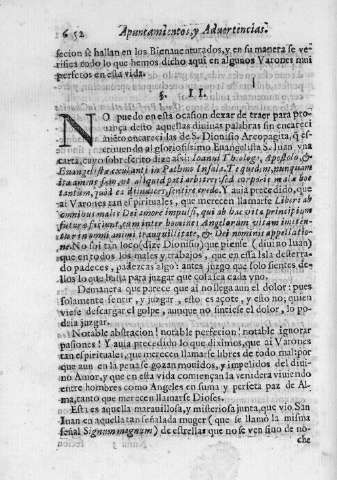 652 Apuntamientos, y Advertencias.
feccion se hallan en los Bienauenturados, y en su manera se ve-
rifica todo lo que hemos dicho aqui en algunos Varones mui
perfetos en esta vida.
§. II.
NO puedo en esta ocasion dexar de traer para pro-
uança desto aquellas diuinas palabras sin encareci
miẽto encarecidas de S. Dionisio Areopagita, q̃ es-
criuendo al gloriosissimo Euangelista S. Iuan vna
carta, cuyo sobrescrito dize assi: Ioanni Theologo, Apostolo, &
Euangelistæ exulanti in Pathmo Insula. Te quidem, nunquam
ita amens sum, ut aliquid pati arbitrer, sed corporis mala hoc
tantum, quod ea dijudices, sensire credo. Y auia precedido, que
ai Varones tan espirituales, que merecen llamarse Liberi ab
omnibus malis Dei amore impulsi, qui ab hac vita principium
futuræ sumunt, cum inter homines Angelorum vitam imiten-
tur in omni animi tranquillitate, & Dei nominis appellatio-
ne. No sui tan loco (dize Dionisio,) que piense (diuino Iuan)
que en todos los males y trabajos, que en esta Isla desterra-
do padeces, padezcas algo: antes juzgo que solo sientes de-
llos lo que basta para juzgar que cosa sea cada vno.
Demanera que parece que ai no llega aun el dolor: pues
solamente sentir, y juzgar, esto es açote, y esto no, quien
viese descargar el golpe, aunque no sintiese el dolor, lo po-
deia juzgar.
Notable abstracion! notable perfecion! notable ignorar
pasiones! Y auia precedido lo que diximos, que ai Varones
tan espirituales, que merecen llamarse libres de todo mal: por
que aun en la pena se gozan mouidos, y impelidos del diui-
no Amor, y que en esta vida comiençan la venidera viuiendo
entre hombres como Angeles en suma y perfeta paz de Al-
ma, tanto que merecen llamarse Dioses.
Esta es aquella marauillosa, y misteriosa junta, que vio San
Iuan en aquella tan señalada muger (que se llamò la misma
señal Signum magnum) de estrellas que no se ven sino de no-
che